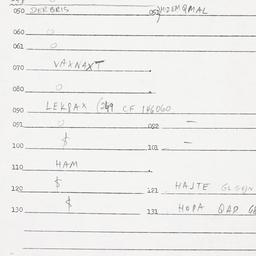 050 DERBRIS 051
060 O
061 O
070 VAXNAXT
080 O
090 LEKPAX (249 CF 146060
091 O 092 —
100 $ 101 —
110 HAM
120 $ 121 HAJTE
130 $ 131 HOPA QAD